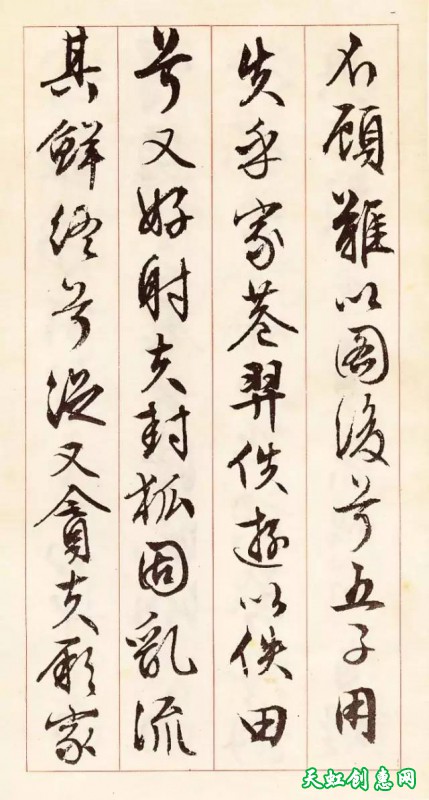 不顧難以圖後兮五子用
失乎家巷羿佚遊以佚田
兮又好射夫封狐固亂流
其鮮終兮浞又貪夫厥家
天虹创惠网